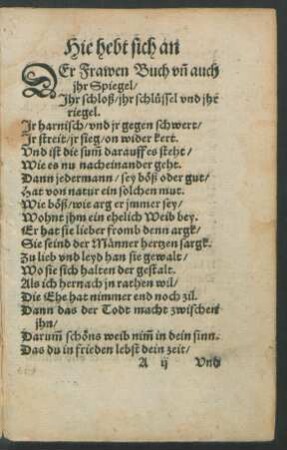 Hie hebt sich an
DEr Frawen Buch vñ auch
jhr Spiegel/
Jhr schloß/jhr schlüssel vnd jhr
riegel.
Jr harnisch/vnd jr gegen schwert/
Jr streit/jr sieg/on wider kert.
Vnd ist die sum̃ darauff es steht/
Wie es nu nacheinander geht.
Dann jedermann/sey böß oder gut/
Hat von natur ein solchen mut.
Wie böß/wie arg er jmmer sey/
Wohnt jhm ein ehelich Weib bey.
Er hat sie lieber fromb denn argk/
Sie seind der Männer hertzen sargk.
Zu lieb vnd leyd han sie gewalt/
Wo sie sich halten der gestalt.
Als ich hernach jn rathen wil/
Die Ehe hat nimmer end noch zil.
Dann das der Todt macht zwischen
jhn/
Darum̃ schöns weib nim̃ in dein sinn.
Das du in frieden lebst dein zeit/
A ij Vnd